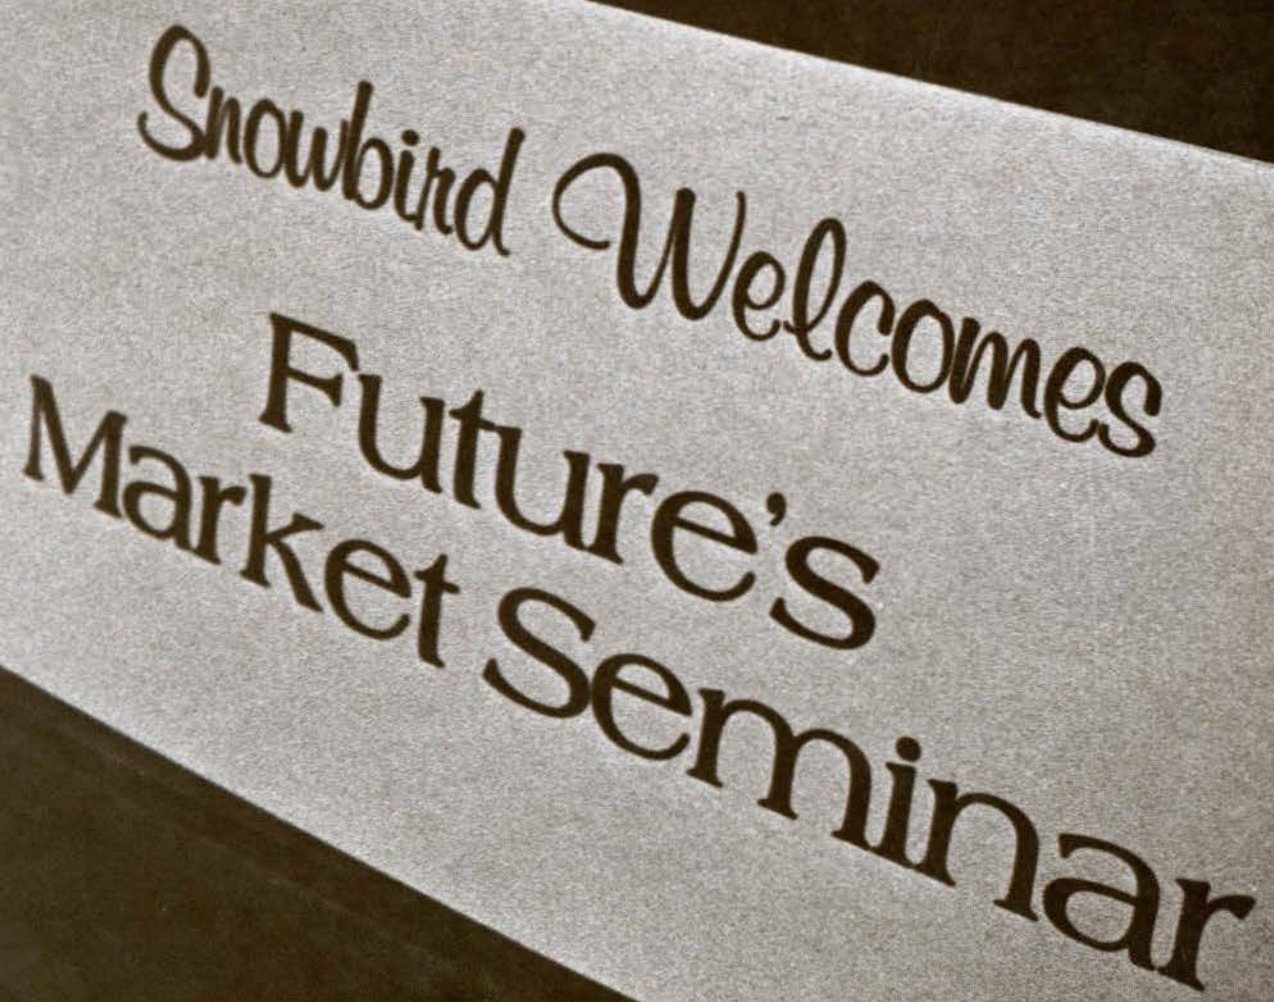 Snowbird Welcomes
Future's
Market Seminar